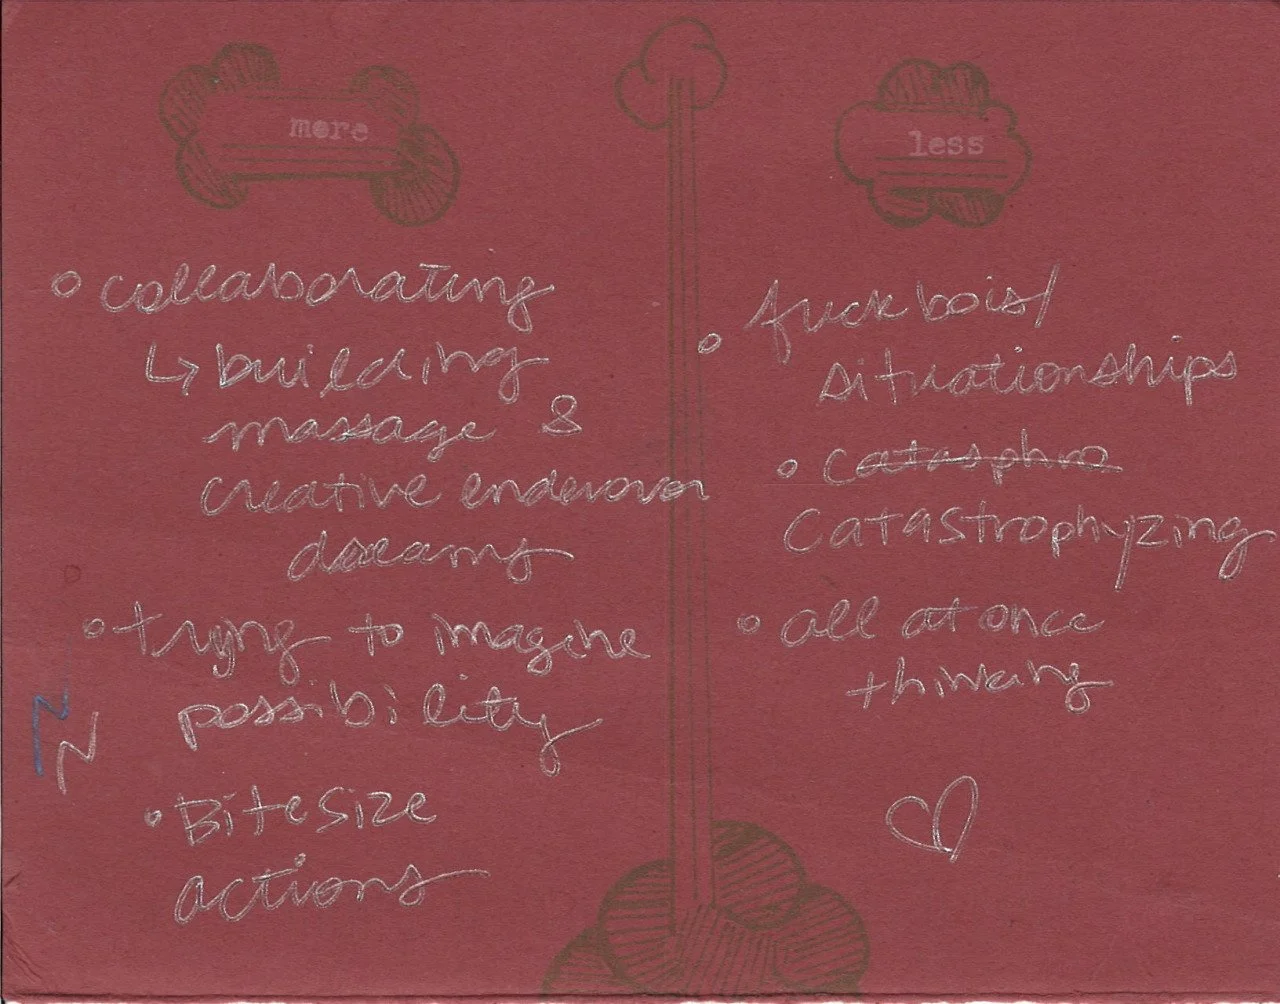 more
collaborating
↳ building
massage &
creative endeavor
dreams
trying to imagine
possibility
Bite size
actions
less
fuck bois/
situationships
Catasphro
Catastrophyzing
all at once
thinking